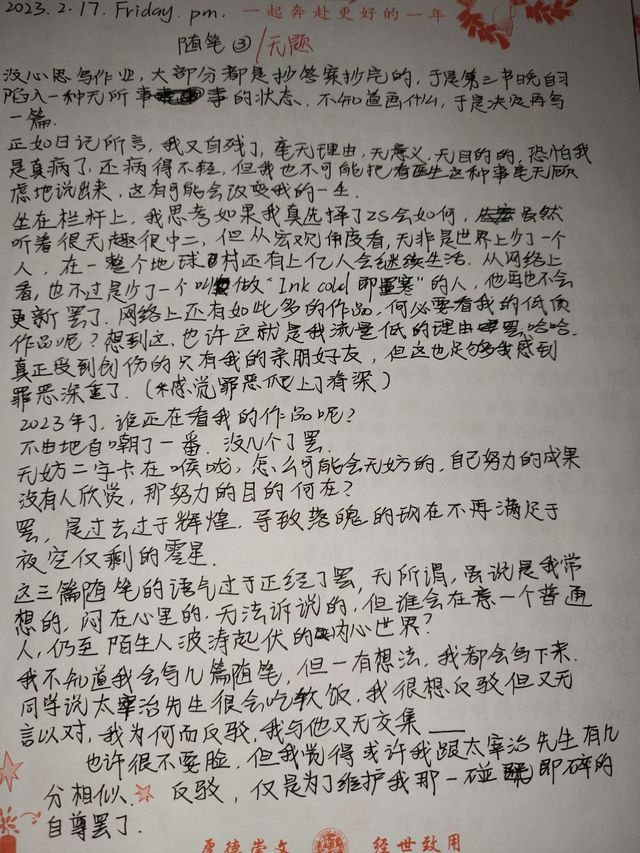 2023.2.17. Friday. pm.
一起奔赴更好的一年
随笔③/无题
没心思写作业,大部分都是抄答案抄完的,于是第三节晚自习
陷入一种无所事事的状态、不知道画什么,于是决定再写
一篇.
正如日记所言,我又自残了,毫无理由,无意义,无目的的,恐怕我
是真病了,还病得不轻,但我也不可能把看医生这种事毫无顾
虑地说出来,这有可能会改变我的一生.
坐在栏杆上,我思考如果我真选择了ZS会如何,虽然
听着很无趣很中二,但从宏观角度看,无非是世界上少了一个
人,在一整个地球村还有上亿人会继续生活.从网络上
看,也不过是少了一个叫做"Ink cold 即墨寒"的人,他再也不会
更新罢了.网络上还有如此多的作品,何必要看我的低质
作品呢?想到这,也许这就是我流量低的理由罢哈哈.
真正受到创伤的只有我的亲朋好友,但这也足够我感到
罪恶深重了.(感觉罪恶爬上了脊深)
2023年了,谁还在看我的作品呢?
不由地自嘲了一番.没几个了罢.
无妨二字卡在喉咙,怎么可能会无妨的,自己努力的成果
没有人欣赏,那努力的目的何在?
罢,是过去过于辉煌.导致落魄的现在不再满足于
夜空仅剩的零星.
这三篇随笔的语气过于正经了罢,无所谓,虽说是我常
想的,闷在心里的.无法诉说的,但谁会在意一个普通
人,仍至陌生人波涛起伏的内心世界?
我不知道我会写几篇随笔,但一有想法,我都会写下来.
同学说太宰治先生很会吃软饭,我很想反驳但又无
言以对,我为何而反驳,我与他又无交集——
也许很不要脸.但我觉得或许我跟太宰治先生有几
分相似、反驳,仅是为了维护我那一碰即碎的
自尊罢了.
厚德崇文 经世致用